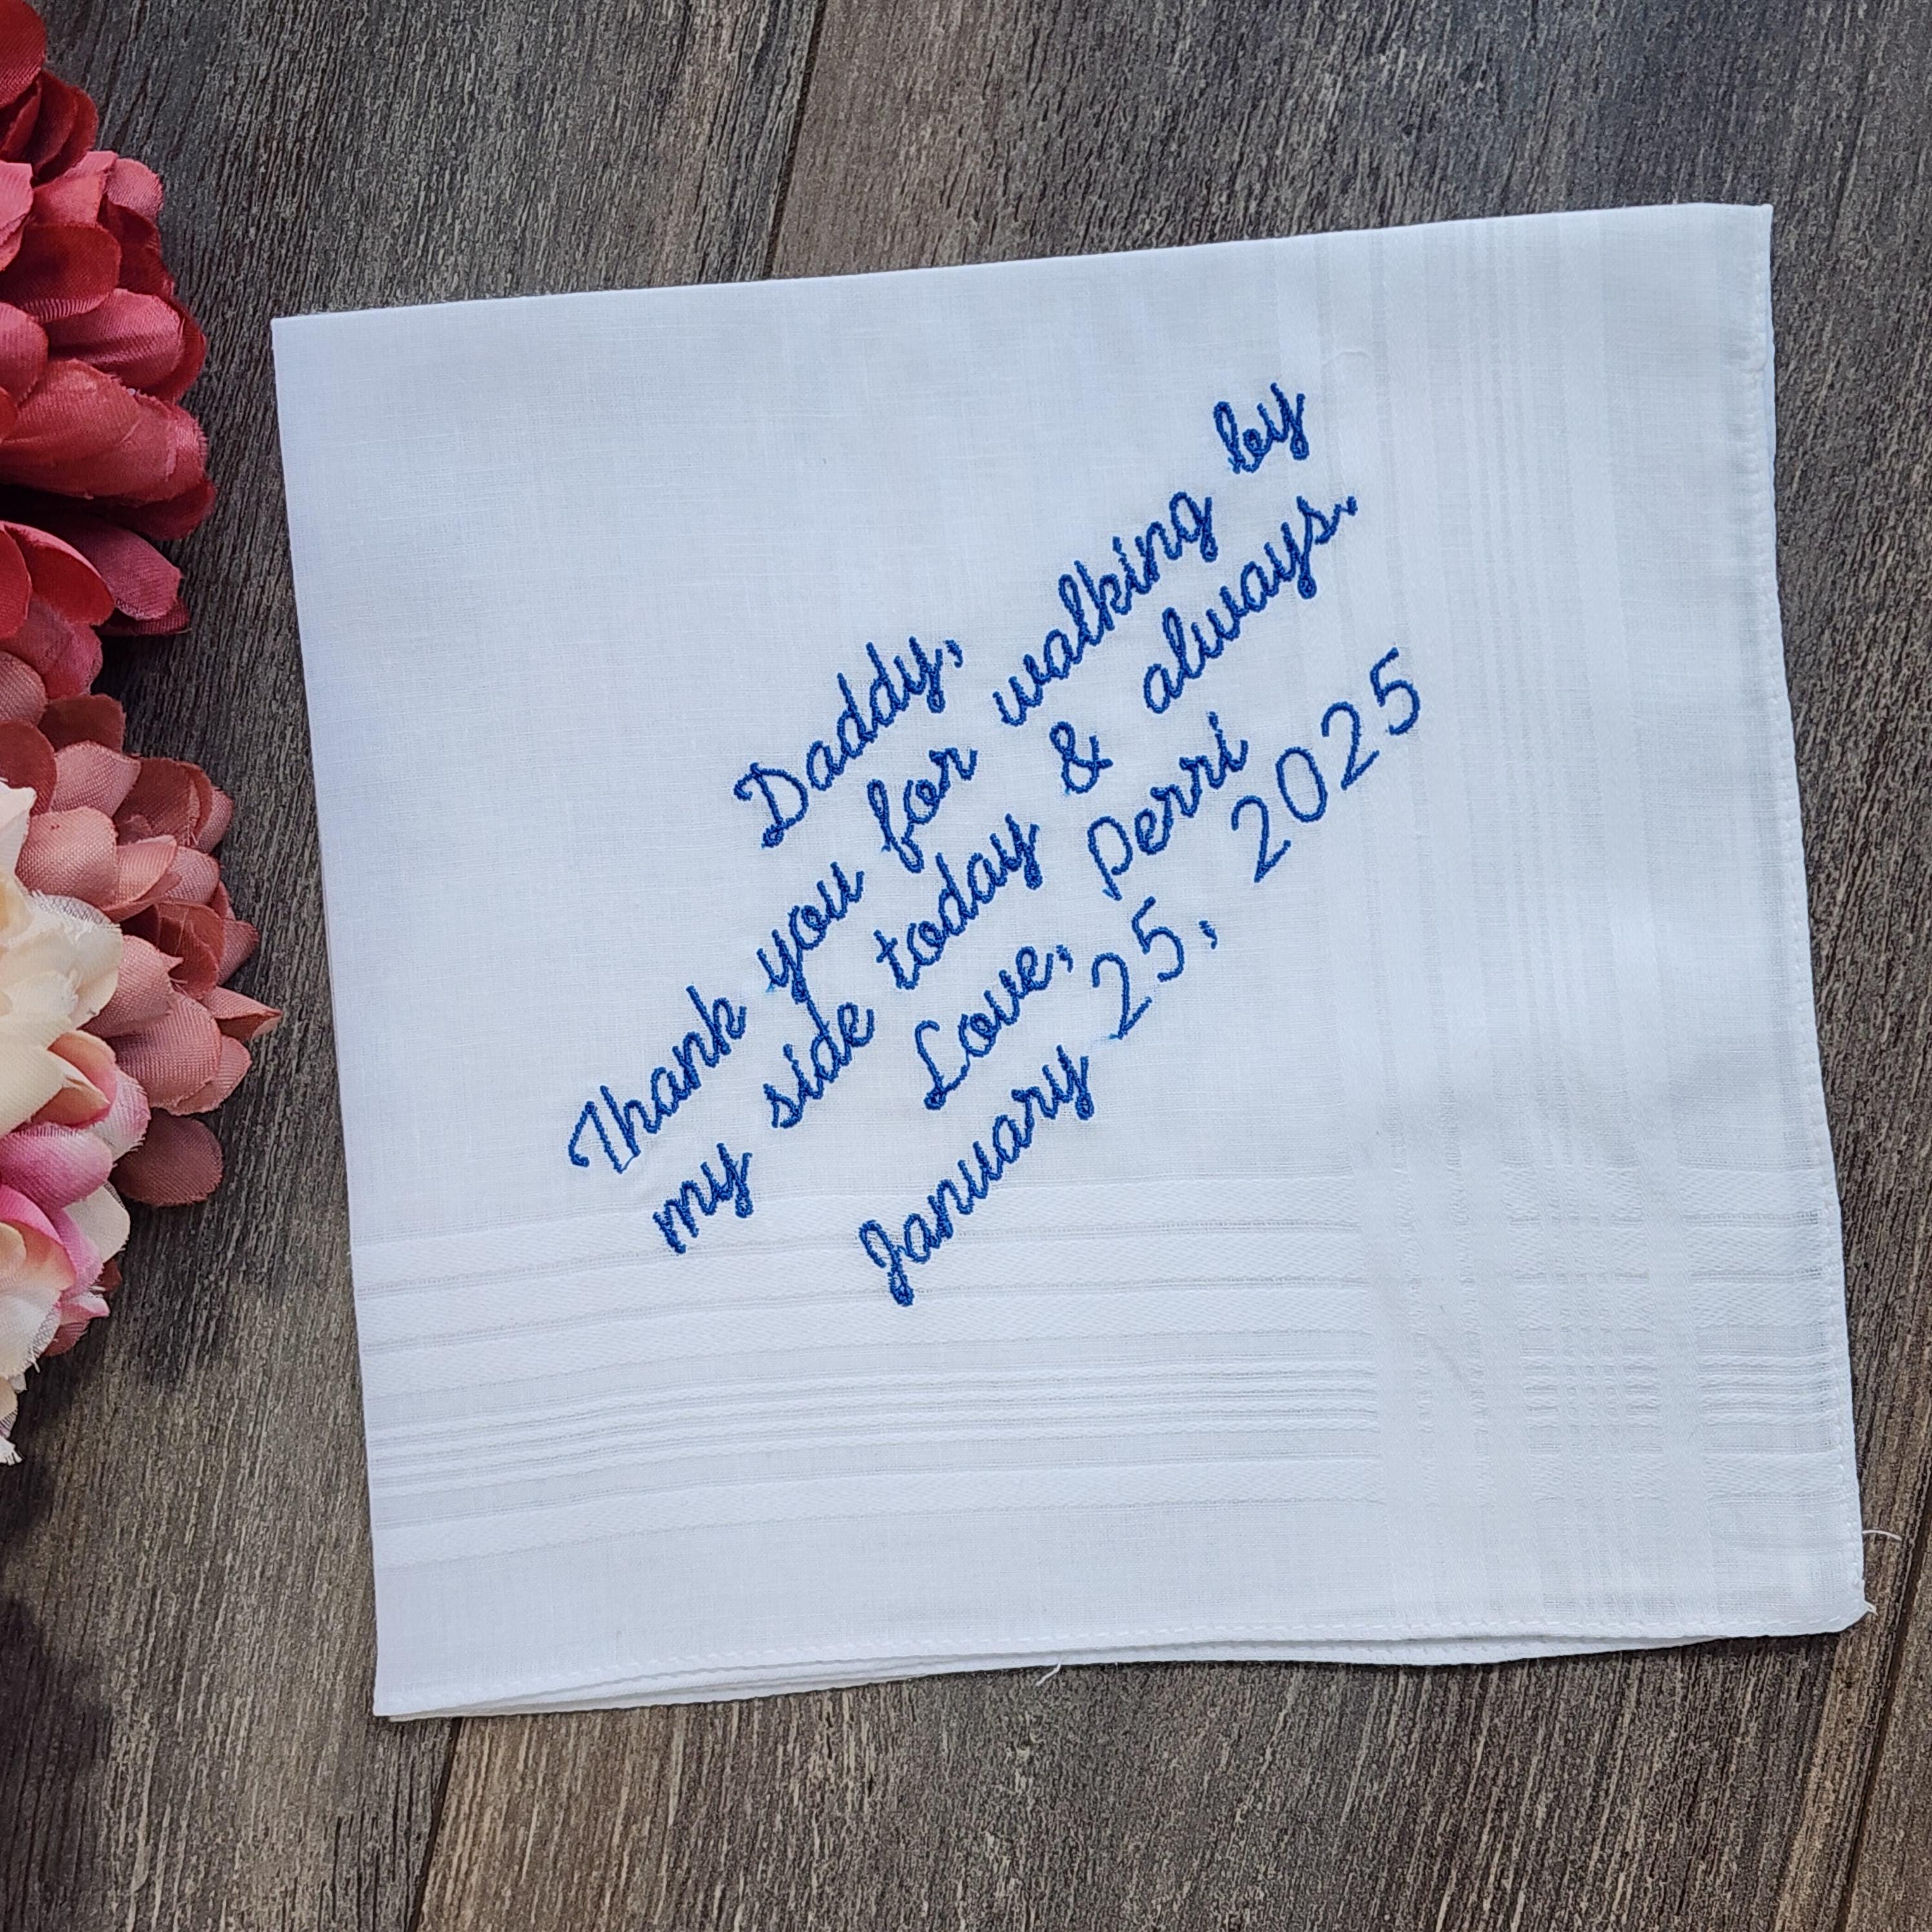 Daddy,
Thank you for walking by
my side today & always.
Love, Perri
January 25, 2025